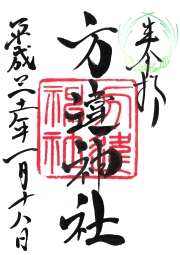 奉拝
方違神社
平成二十六年一月十八日